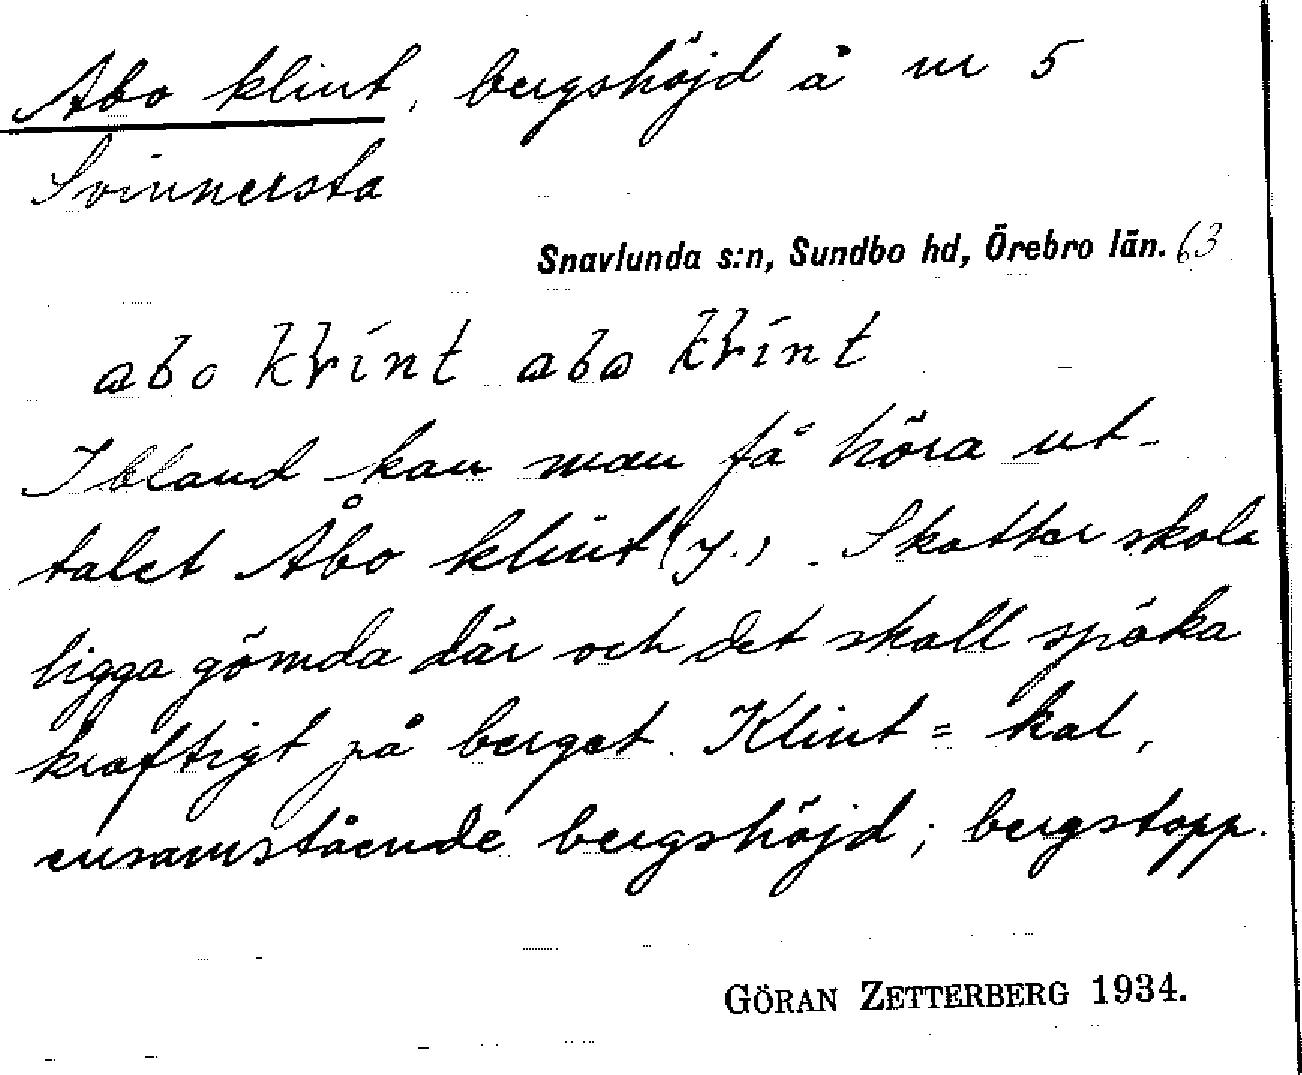 Abo klint, bergshöjd å nr 5
Svinnersta
Snavlunda s:n, Sundbo hd, Örebro län. 63
Ibland kan man få höra ut-
talet Åbo klint (y.). Skatter skola
ligga gömda där och det skall spöka
kraftigt på berget. Klint = kal,
ensamstående bergshöjd; bergstopp.
GÖRAN ZETTERBERG 1934.